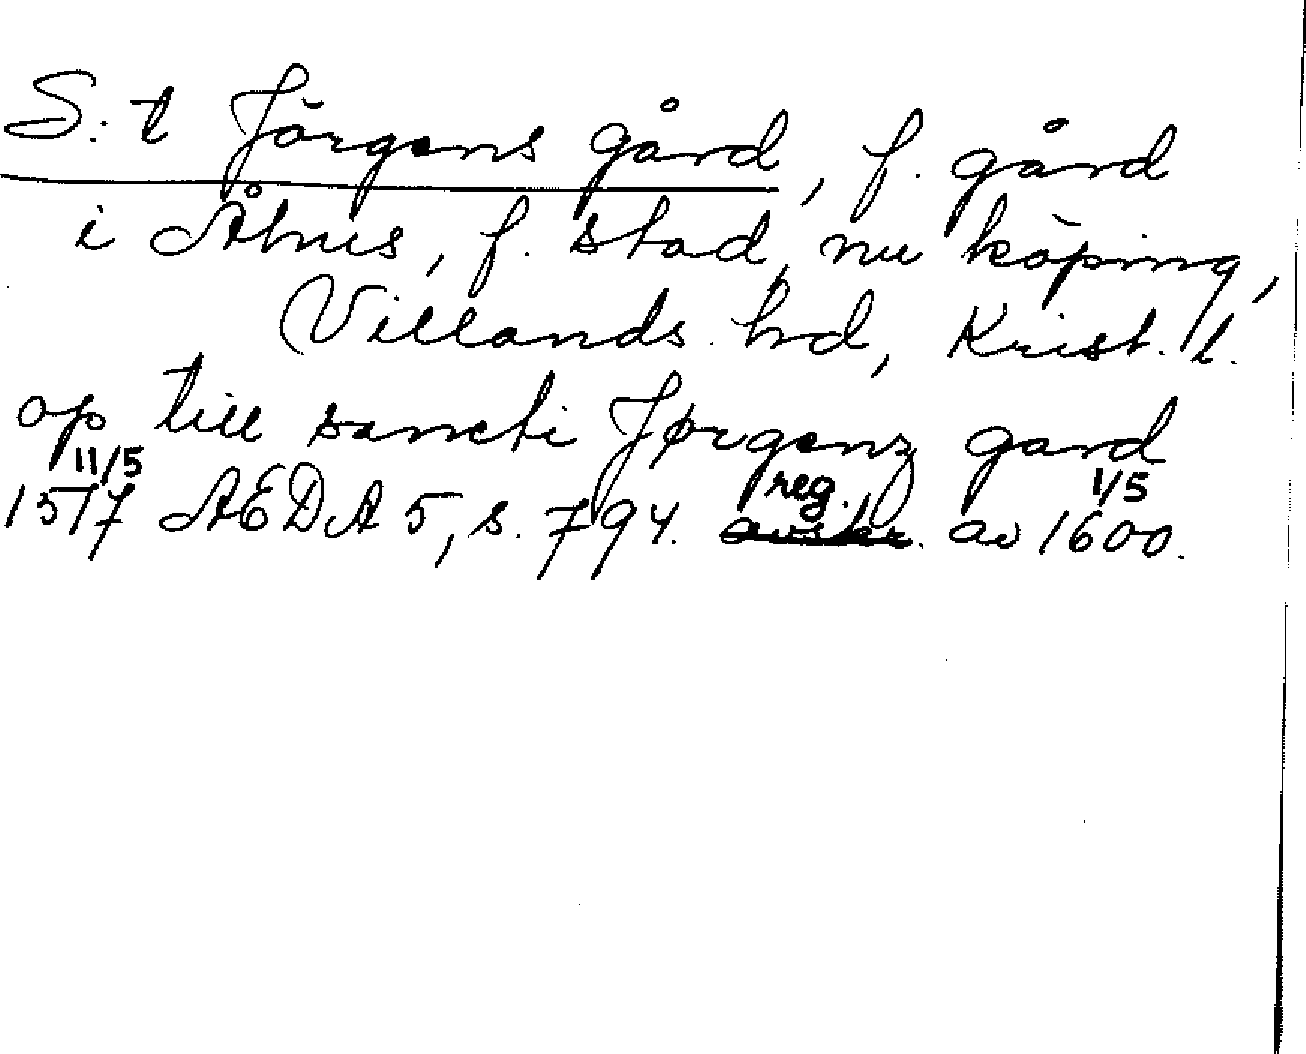 S:t Jörgens gård, f. gård
i Åhus, f. stad, nu köping,
Villands hd, Krist. l.
op till sancti Jørgenz gard
11/5 reg. 1/5
1517 AEDA 5, s. 794. avskr. av 1600.